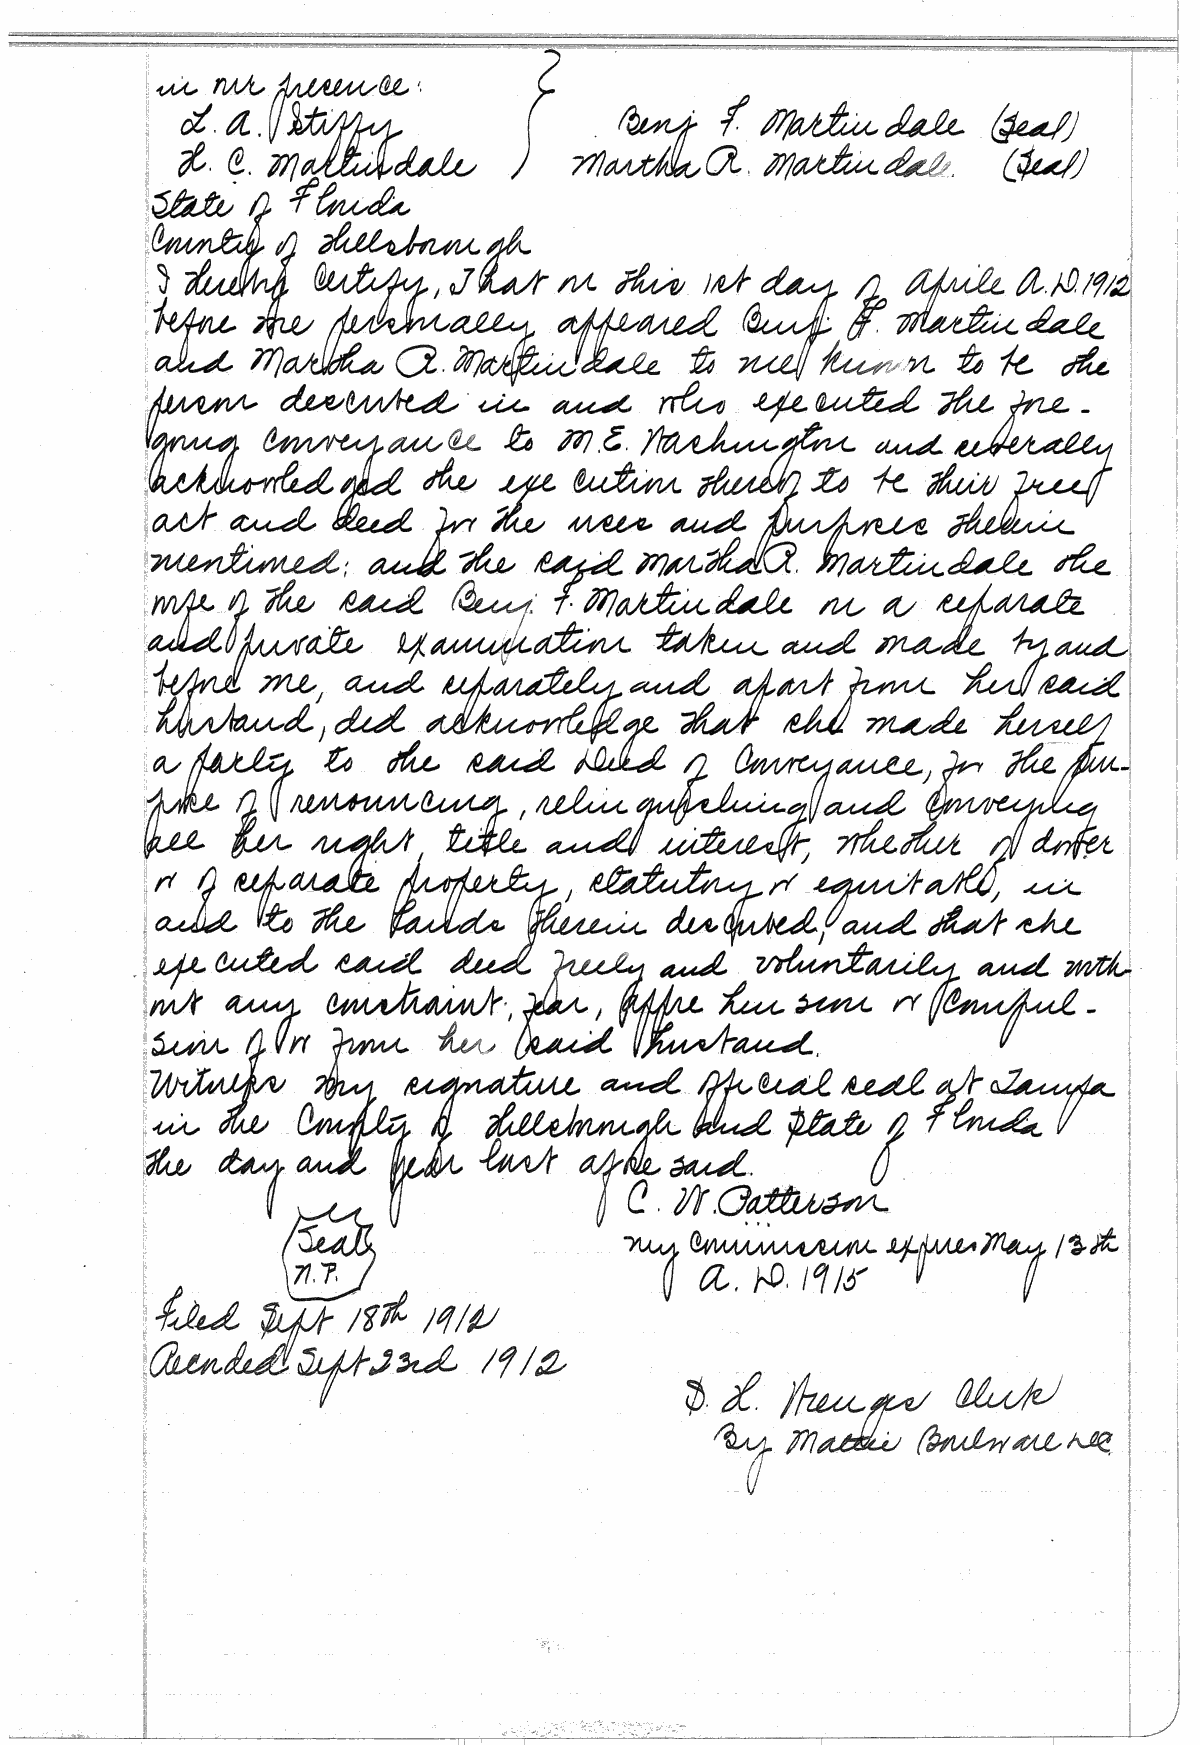 in our presence:
L. A. Stiffy
H. C. Martindale
Benj F. Martindale (Seal)
Martha R. Martindale. (Seal)
State of Florida
County of Hillsborough
I hereby Certify, That on this 1st day of Aprile A.D. 1912
before me personally appeared Benj. F. Martindale
and Martha R. Martindale to me known to be the
person described in and who executed the fore-
going conveyance to M.E. Washington and severally
acknowledged the execution thereof to be their free
act and deed for the uses and purposes therein
mentioned; and the said Martha R. Martindale the
wife of the said Benj. F. Martindale on a separate
and private examination taken and made by and
before me, and separately and apart from her said
husband, did acknowledge that she made herself
a party to the said Deed of Conveyance, for the pur-
pose of renouncing, relinquishing and conveying
all her right, title and interest, whether of dower
or of separate property, statutory or equitable, in
and to the lands therein described, and that she
executed said deed freely and voluntarily and with-
out any constraint, fear, apprehension or compul-
sion of or from her said husband.
Witness my signature and official seal at Tampa
in the County of Hillsborough and State of Florida
the day and year last aforesaid.
C. W. Patterson
My Commission expires May 13th
A. D. 1915
Seal
N.P.
Filed Sept 18th 1912
Recorded Sept 23rd 1912
D. H. Clerk
By Mattie Boulware D.C.